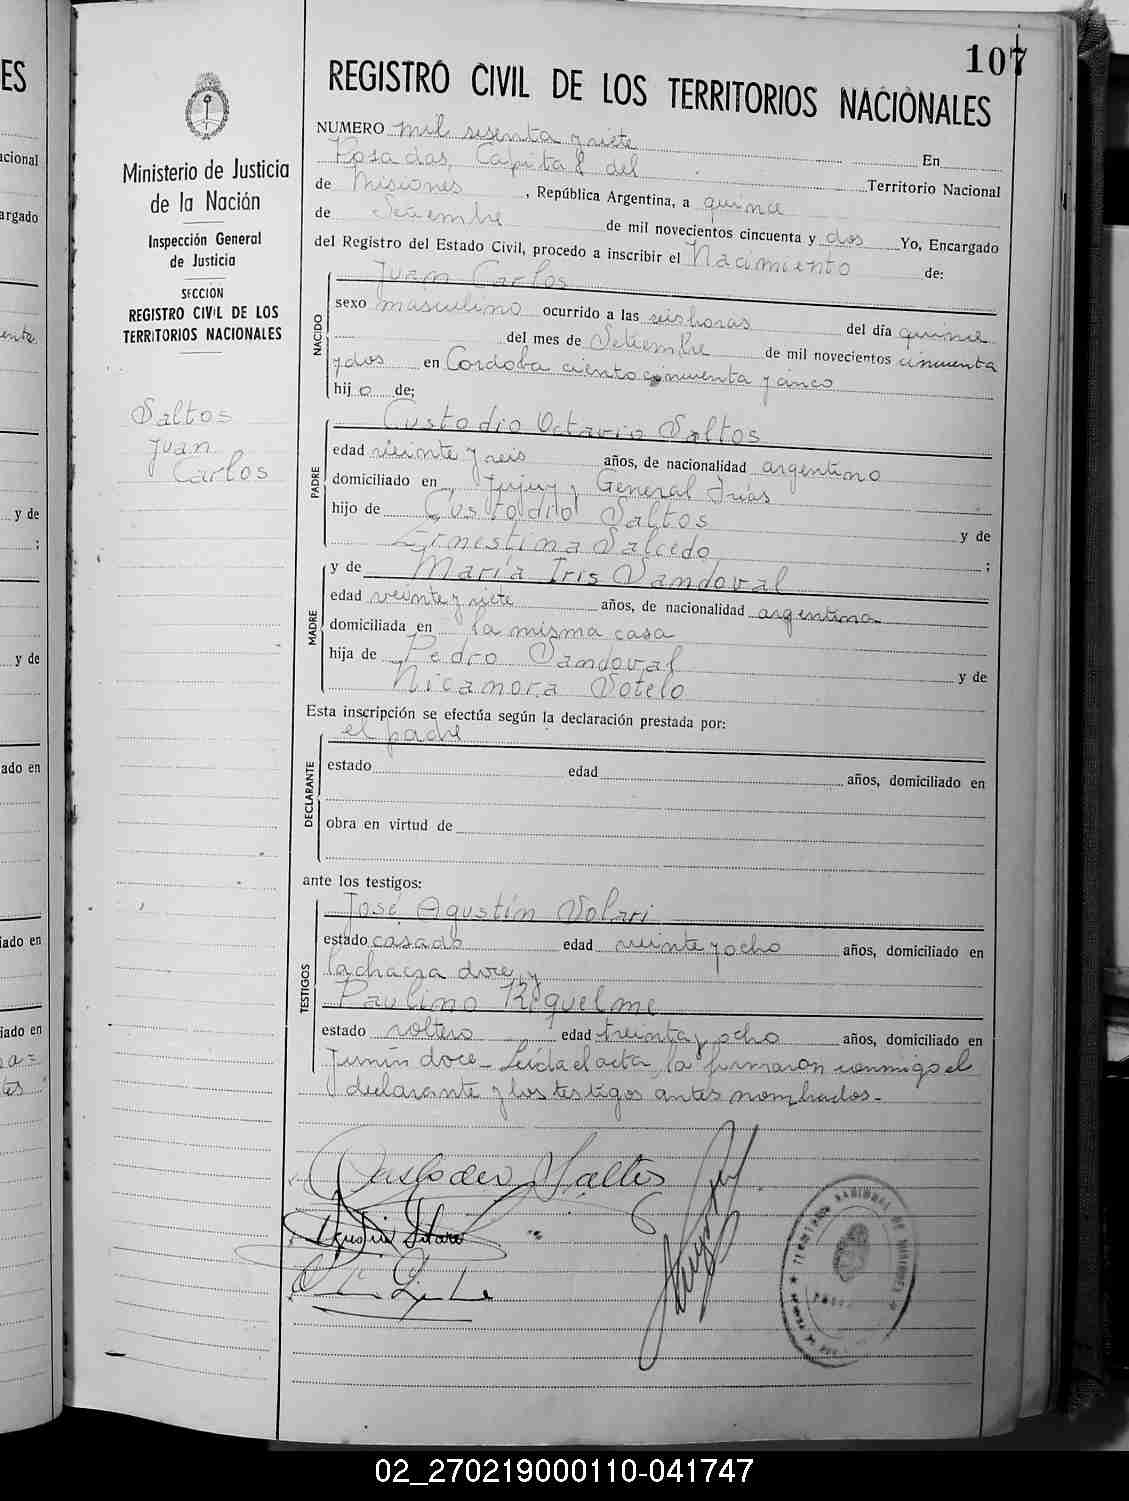 107
REGISTRO CIVIL DE LOS TERRITORIOS NACIONALES
Ministerio de Justicia
de la Nación
Inspección General
de Justicia
SECCIÓN
REGISTRO CIVIL DE LOS
TERRITORIOS NACIONALES
Saltos
Juan
Carlos
NUMERO mil sesenta y siete En
Posadas, Capital del Territorio Nacional
de Misiones, República Argentina, a quince
de Setiembre de mil novecientos cincuenta y dos Yo, Encargado
del Registro del Estado Civil, procedo a inscribir el Nacimiento de:
NACIDO
Juan Carlos
sexo masculino ocurrido a las seis horas del día quince
del mes de Setiembre de mil novecientos cincuenta
y dos en Cordoba ciento cincuenta y cinco
hijo de;
PADRE
Custodio Octavio Saltos
edad veinte y seis años, de nacionalidad argentino
domiciliado en Jujuy y General Frías
hijo de Custodio Saltos y de
Ernestina Salcedo ;
MADRE
y de María Iris Sandoval
edad veinte y siete años, de nacionalidad argentina
domiciliada en la misma casa
hija de Pedro Sandoval y de
Nicanora Sotelo
Esta inscripción se efectúa según la declaración prestada por:
DECLARANTE
el padre
estado edad años, domiciliado en
obra en virtud de
ante los testigos:
TESTIGOS
José Agustín Solari
estado casado edad veinte y ocho años, domiciliado en
la chacra doce, y
Paulino Riquelme
estado soltero edad treinta y ocho años, domiciliado en
Junín doce_ Leída el acta, la firmaron conmigo el
declarante y los testigos antes nombrados.-
Custodio Saltos
Agustín Solari
TERRITORIO NACIONAL DE MISIONES
ES
acional
argado
y de
;
y de
ado en
iado en
iado en
02_270219000110-041747